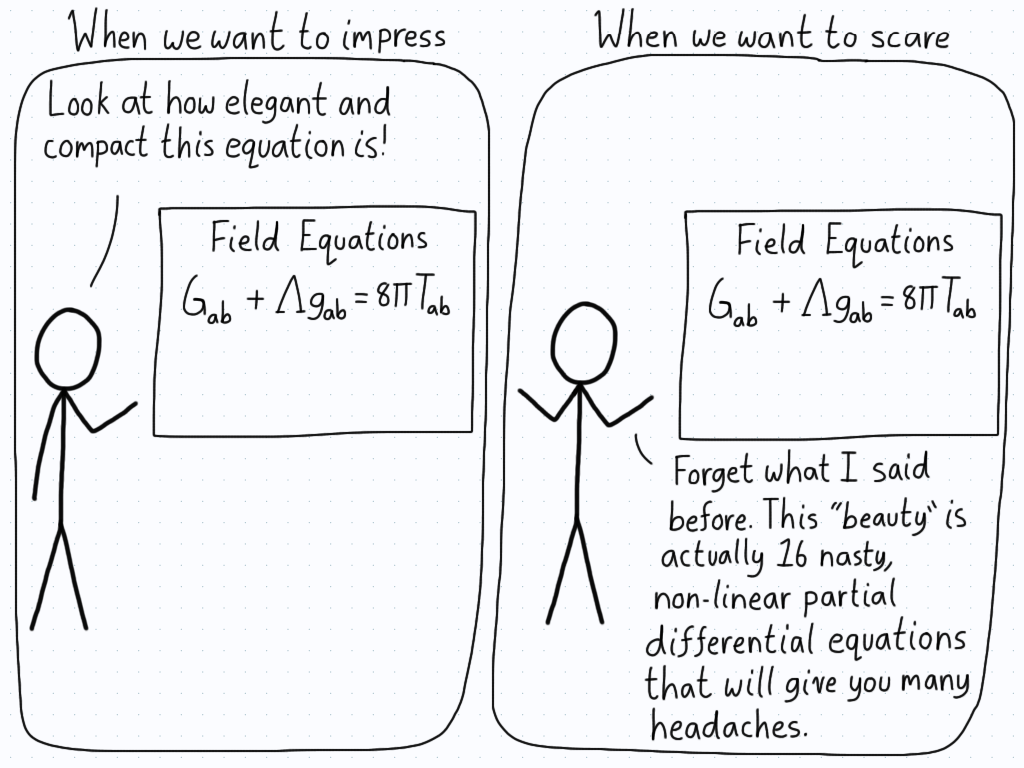 When we want to impress
Look at how elegant and
compact this equation is!
Field Equations
G_ab + Λg_ab = 8πT_ab
When we want to scare
Field Equations
G_ab + Λg_ab = 8πT_ab
Forget what I said
before. This "beauty" is
actually 16 nasty,
non-linear partial
differential equations
that will give you many
headaches.